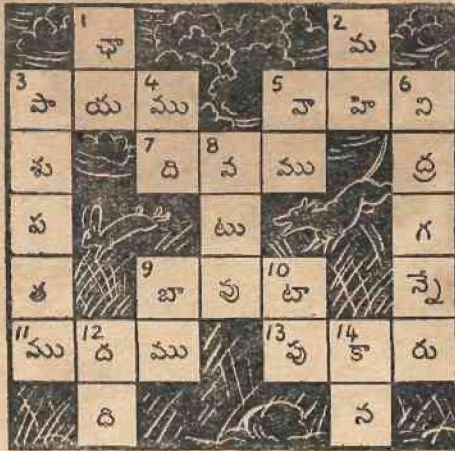 1 ఛా 2 మ
3 పా య 4 ము 5 వా హి 6 ని
శు 7 ది 8 న ము ద్ర
ప టు గ
త 9 బా వు 10 టా న్నే
11 ము 12 ద ము 13 పు 14 కా రు
ది న